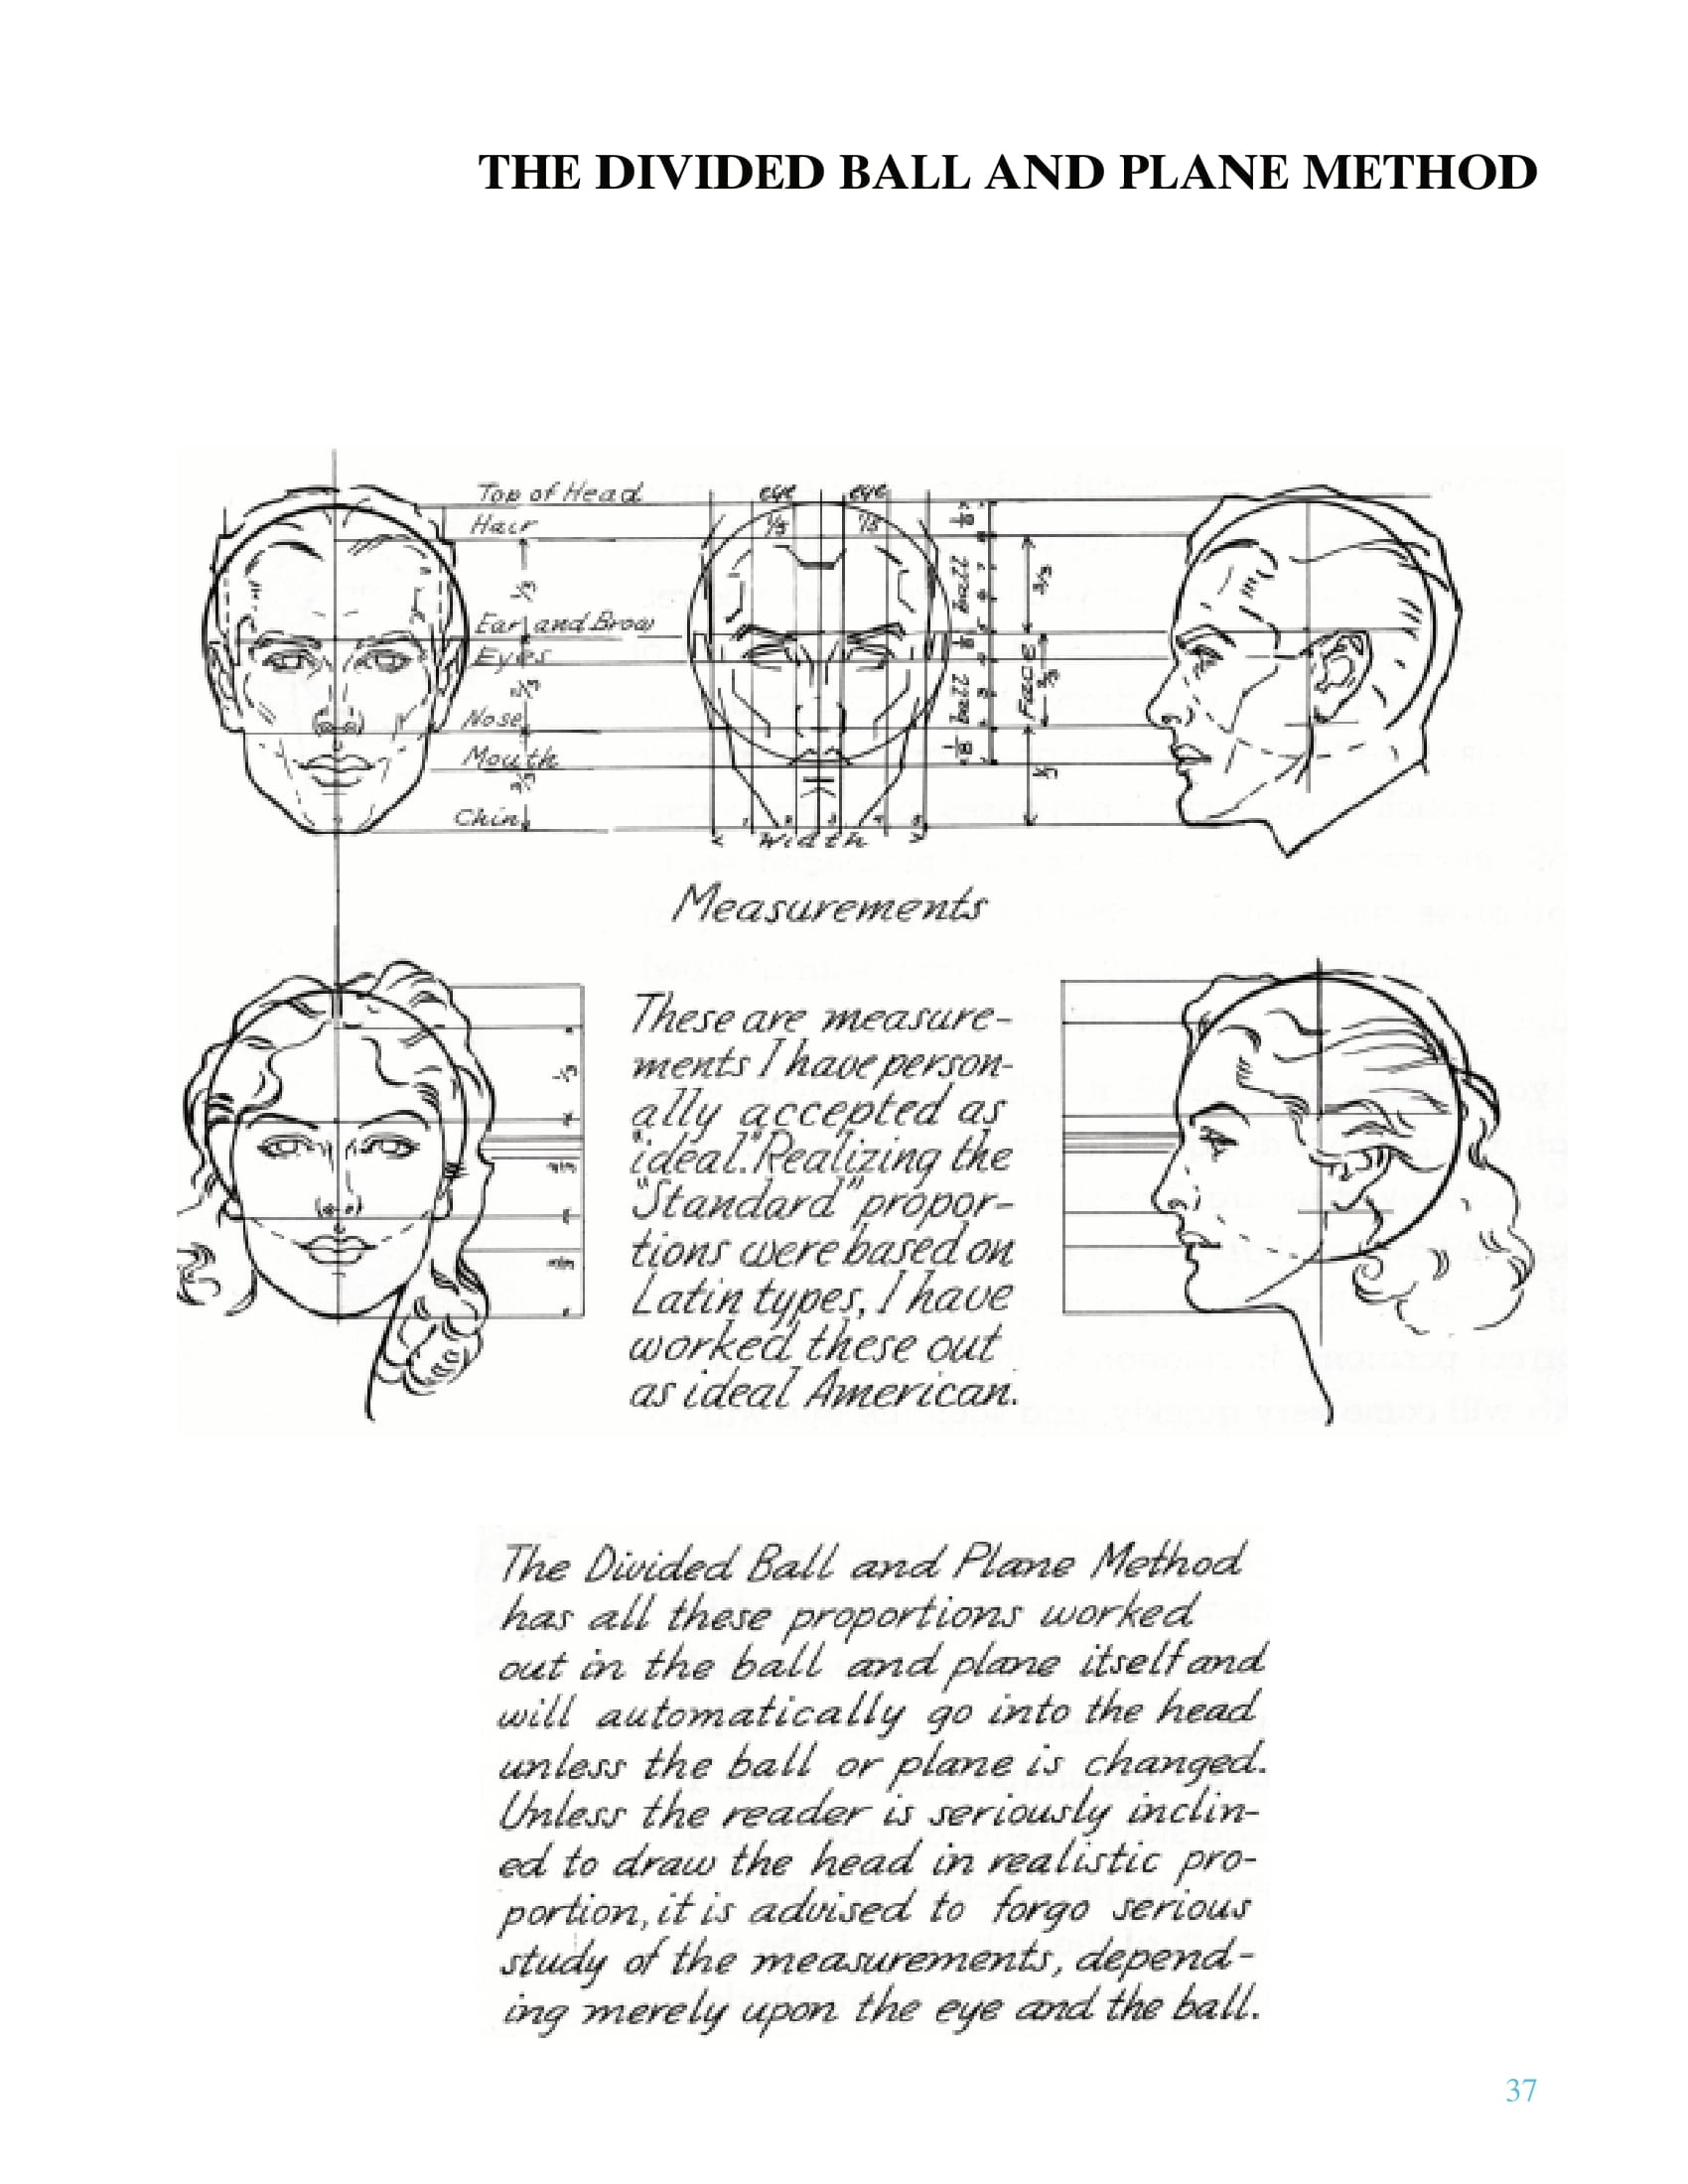 THE DIVIDED BALL AND PLANE METHOD
Top of Head
Hair
1/3
Ear and Brow
Eyes
Nose
Mouth
Chin
eye eye
1/5 1/5
1/8
ball
1/8
ball
1/8
Face
1/3
1 2 3 4 5
Width
Measurements
1/3
These are measure-
ments I have person-
ally accepted as
"ideal." Realizing the
"Standard" propor-
tions were based on
Latin types, I have
worked these out
as ideal American.
The Divided Ball and Plane Method
has all these proportions worked
out in the ball and plane itself and
will automatically go into the head
unless the ball or plane is changed.
Unless the reader is seriously inclin-
ed to draw the head in realistic pro-
portion, it is advised to forgo serious
study of the measurements, depend-
ing merely upon the eye and the ball.
37